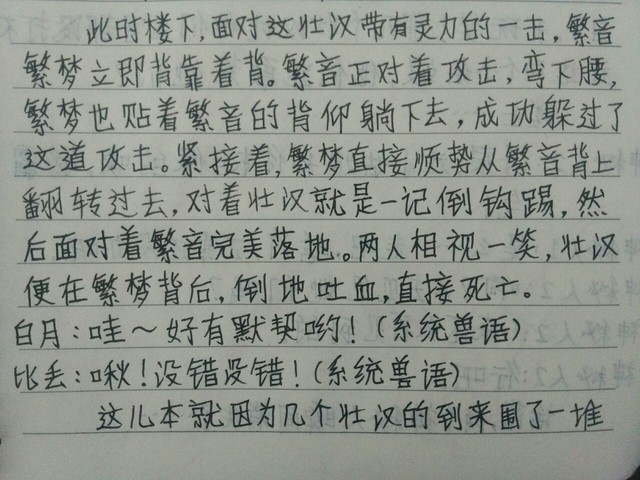 此时楼下,面对这壮汉带有灵力的一击,繁音
繁梦立即背靠着背。繁音正对着攻击,弯下腰,
繁梦也贴着繁音的背仰躺下去,成功躲过了
这道攻击。紧接着,繁梦直接顺势从繁音背上
翻转过去,对着壮汉就是一记倒钩踢,然
后面对着繁音完美落地。两人相视一笑,壮汉
便在繁梦背后,倒地吐血,直接死亡。
白月:哇～好有默契哟!(系统兽语)
比丢:啾!没错没错!(系统兽语)
这儿本就因为几个壮汉的到来围了一堆